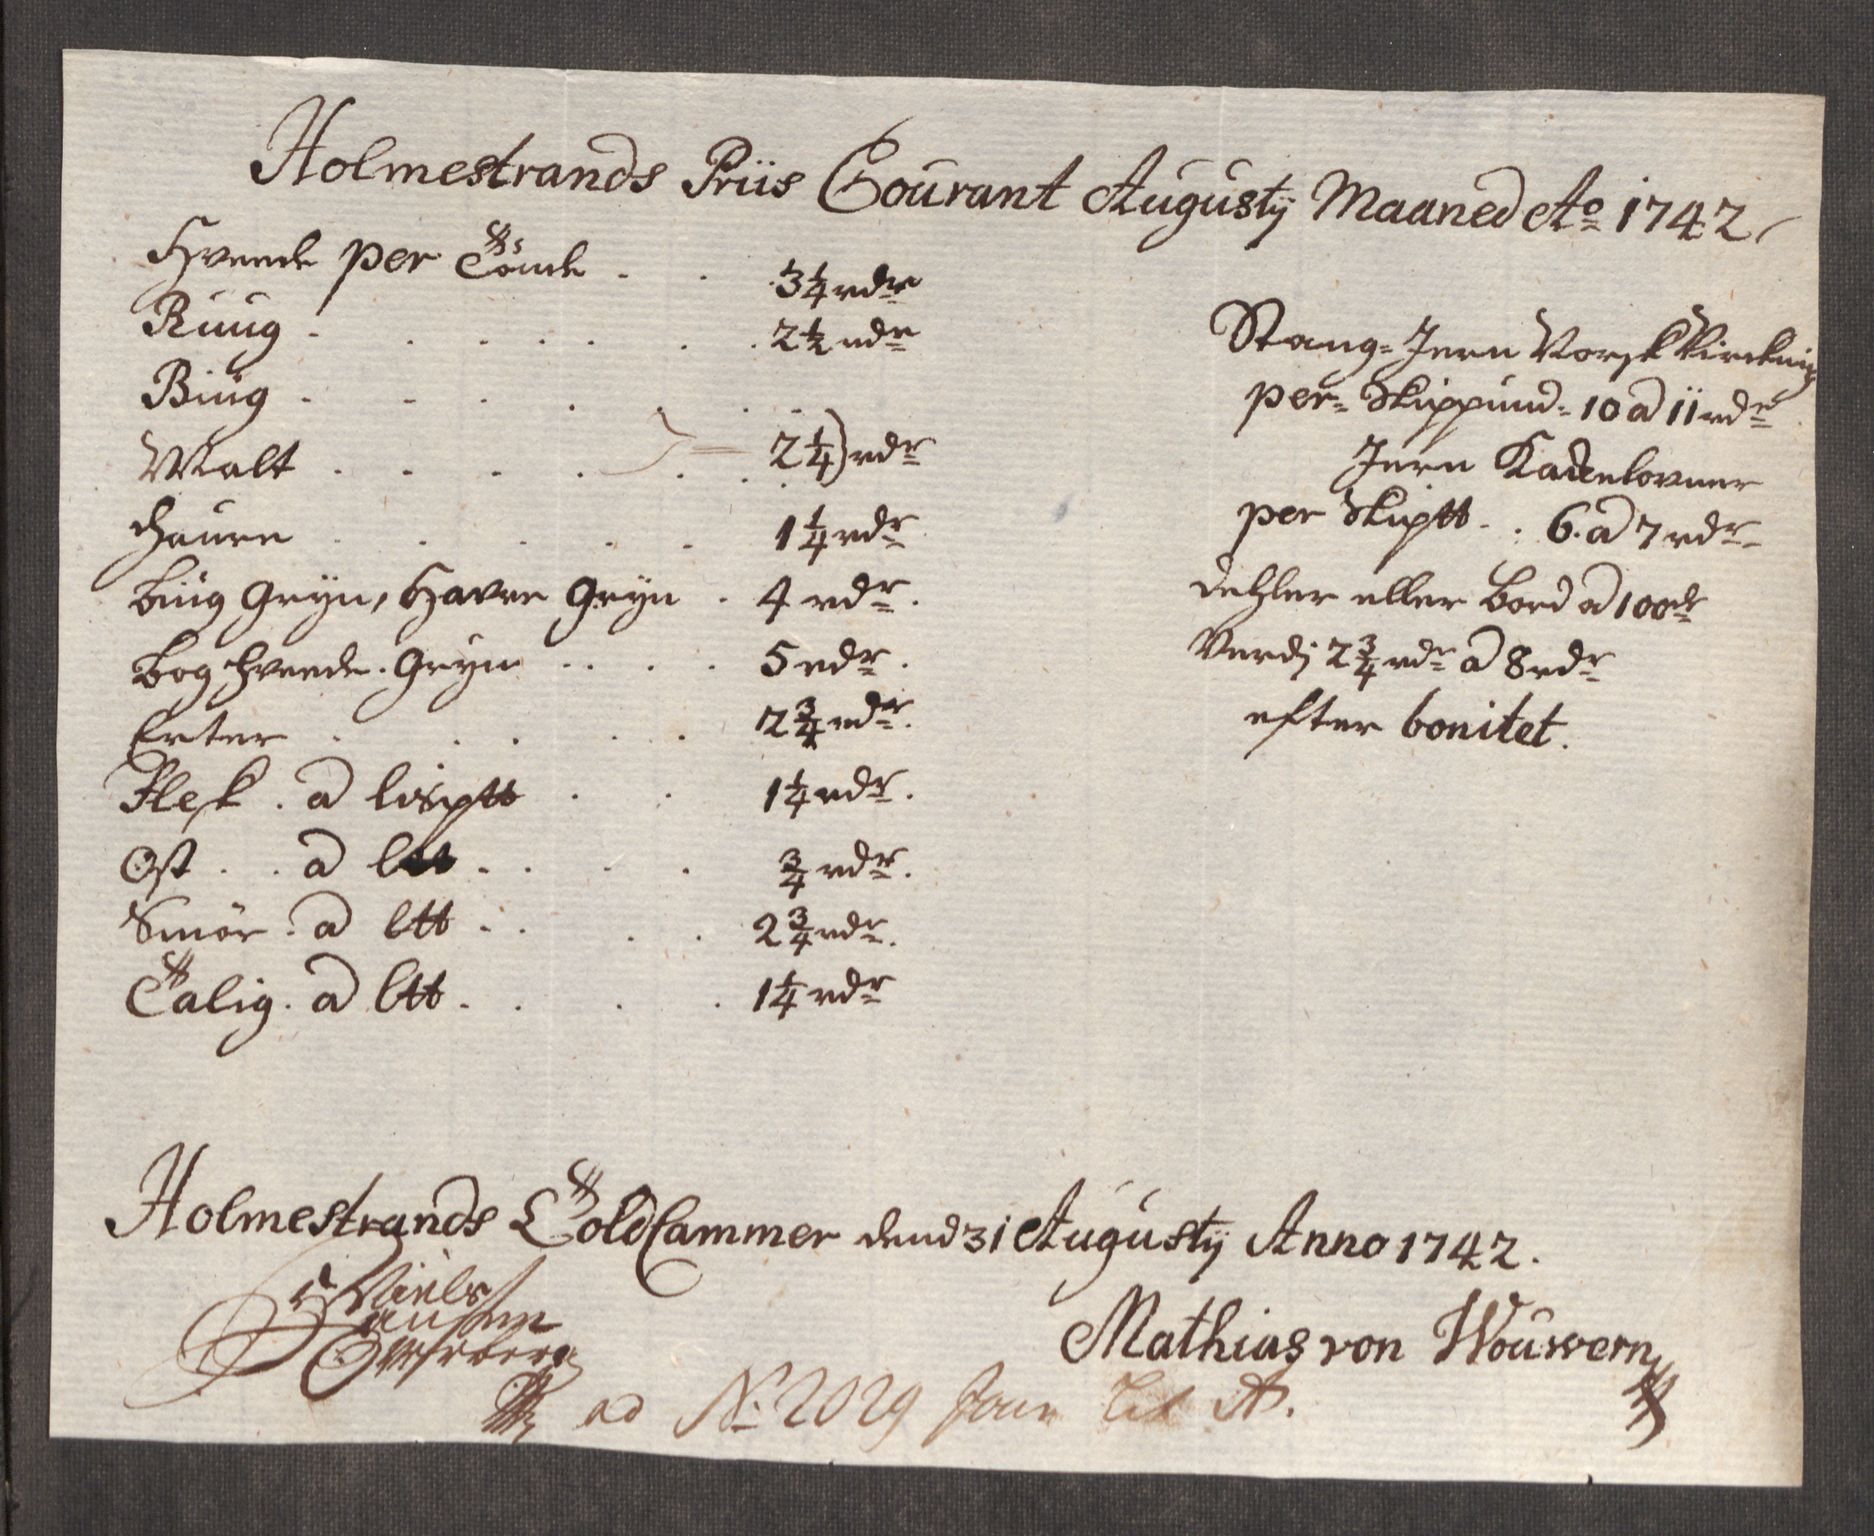 Holmestrands Priis Courant Augusty Maaned Ao 1742
Hveede per Tönde . . 3 1/4 rdr
Ruug . . . . . . . 2 1/2 rdr
Biug . . . . . .
Malt . . . . . . 2 1/4) rdr
Haure . . . . . 1 1/4 rdr
Biug Gryn, Havre Gryn . 4 rdr.
Boghveede. Gryn . . . . 5 rdr.
Erter . . . . . 2 3/4 rdr.
Flesk . a lisptt . . 1 1/4 rdr.
Ost . . a ltt . . . . 3/4 rdr.
Smör . a ltt . . . . 2 3/4 rdr.
Talig . a ltt . . . . 1 1/4 rdr
Stang-Jern Norsk Virckning
per Skippund: 10 a 11 rdr
Jern Kackelovner
per Skiptt . . 6. a 7 rdr
Dehler eller Bord a 100de
Verdj 2 3/4 rdr a 8 rdr
efter bonitet.
Holmestrands ToldCammer dend 31 Augusty Anno 1742.
Niels
Hansen
Mathias von Wouwern
ad No 2029 Jour Lit A.